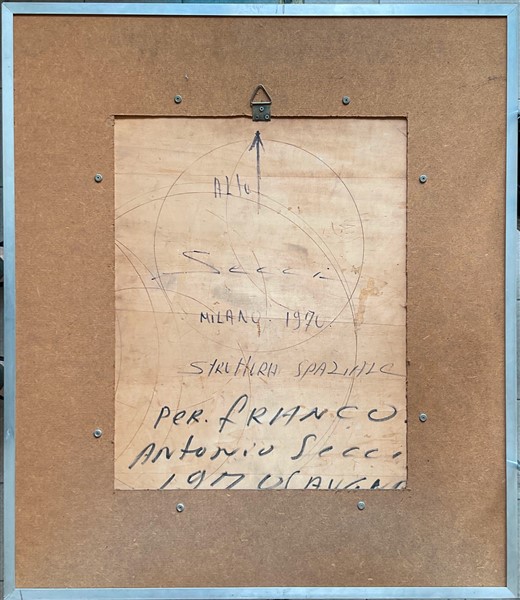 Alto
Secci
MILANO. 1970.
STRUTTURA SPAZIALE
PER. FRANCO.
Antonio Secci